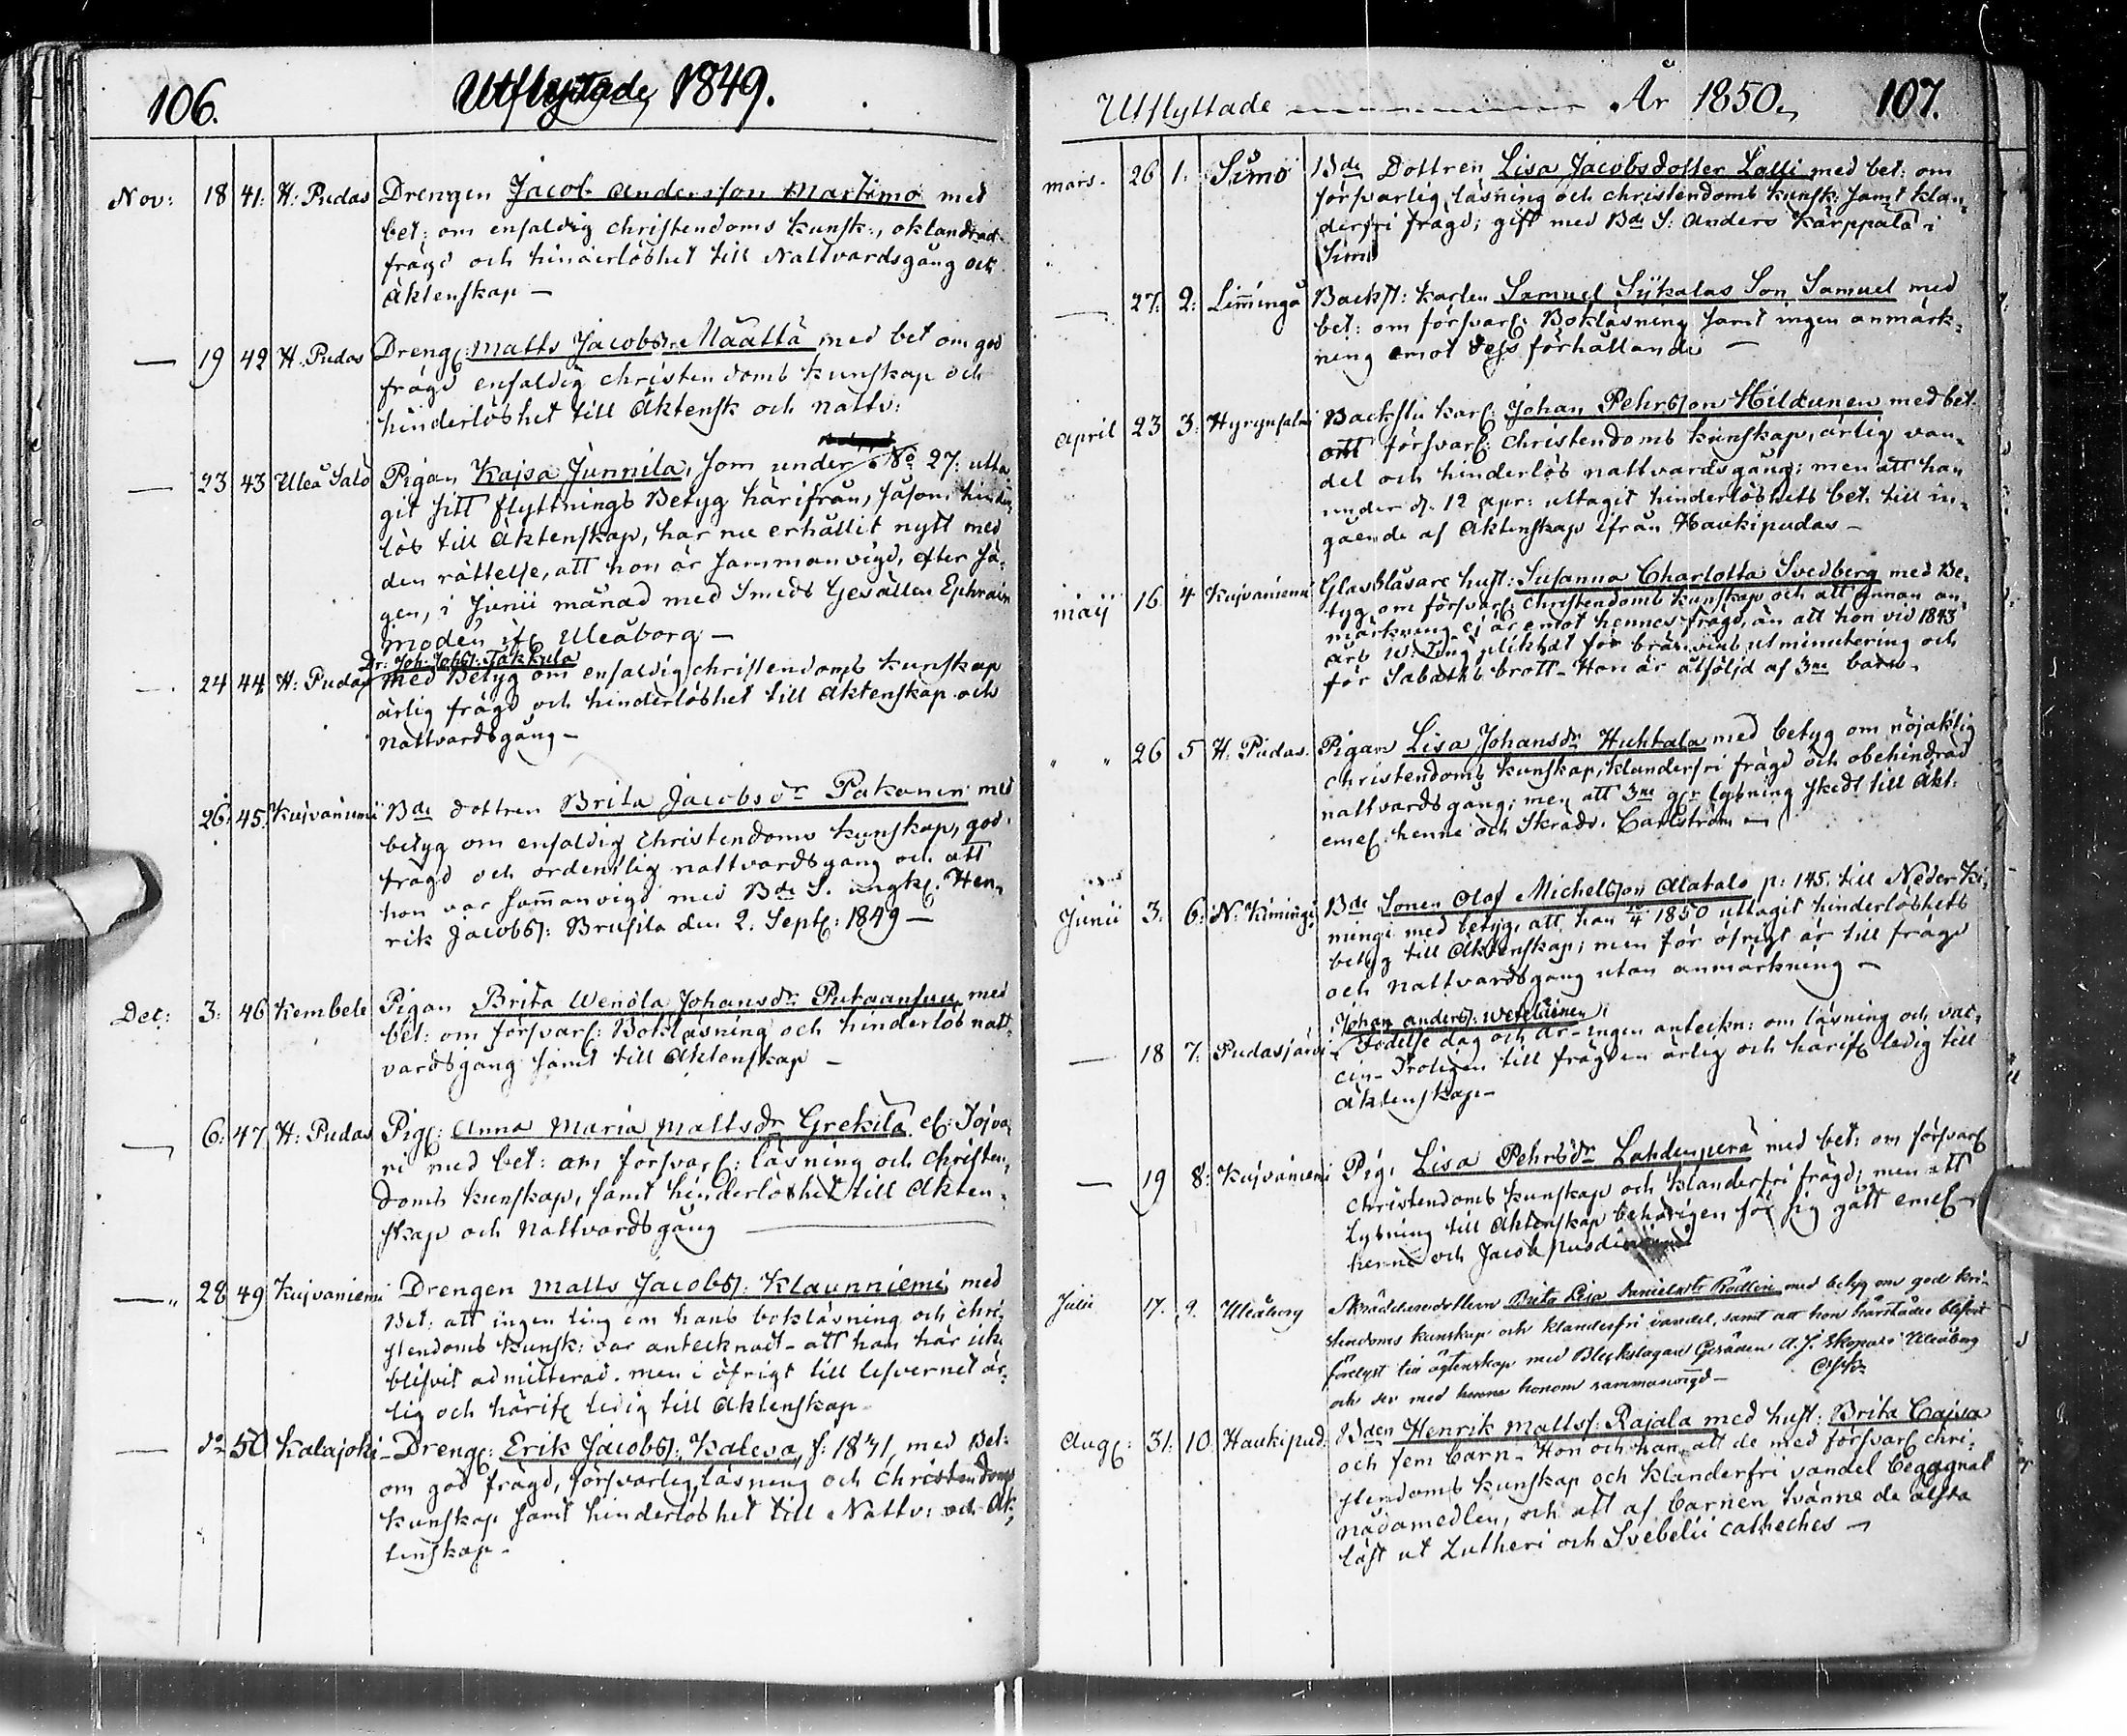 106.
Utflyttade 1849.
Nov: 18 41: H: Pudas Drengen Jacob Andersson Martimo med
bet: om enfaldig christendoms kunsk:, oklandrad
frägd och hinderlöshet till Nattvardsgång och
Äktenskap —
— 19 42 H. Pudas Dreng: Matts Jacobss: Määttä med bet om god
frägd enfaldig christendoms kunskap och
hinderlöshet till Äktensk och nattv:
— 23 43 Uleå Salo Pigan Kajsa Junnila, som under No 27: utta
git sitt flyttnings Betyg härifrån, såsom hinder
lös till Äktenskap, har nu erhållit nytt med
den rättelse, att hon är sammanvigd, efter sä-
gen, i Junii månad med Smeds Gesällen Ephraim
Modén if: Uleåborg —
Dr: Joh: Johss: Jäkkula
— 24 44 H: Pudas med Betyg om enfaldig christendoms kunskap
ärlig frägd och hinderlöshet till Äktenskap och
nattvardsgång —
26: 45: Kuivaniemi Bde dottren Brita Jacobsdr Pakanen med
betyg om enfaldig christendoms kunskap, god
frägd och ordentlig nattvardsgång och att
hon var sammanvigd med Bde S. ungk: Hen-
rik Jacobss: Brusila den 2. Sept: 1849 —
Dec: 3: 46 Kembele Pigan Brita Wendla Johansdr med
bet: om försvarl: Bokläsning och hinderlös natt-
vardsgång samt till Äktenskap —
— 6: 47 H: Pudas Pig: Anna Maria Mattsdr Grekilä el: Jojva
ri med bet: om försvarl: läsning och christen-
doms kunskap, samt hinderlöshet till Äkten-
skap och Nattvardsgång
— 28 49 Kuivaniemi Drengen Matts Jacobss: Klaunniemi med
Bet: att ingen ting om hans bokläsning och chri-
stendoms kunsk: var antecknadt - att han här icke
blifvit admitterad. men i öfrigt till lefvernet är-
lig och härif: ledig till Äktenskap
— do 50 Kalajoki - Dreng: Erik Jacobss: Kaleva, f: 1831, med Bet:
om god frägd, försvarlig läsning och Christendoms
kunskap samt hinderlöshet till Nattv: och Äk-
tenskap -
Utflyttade År 1850. 107.
mars. 26 1. Simo Bde Dottren Lisa Jacobsdotter Lalli med bet: om
försvarlig läsning och christendoms kunsk: samt klan-
derfri frägd; gift med Bde S: Anders Kärppälä i
Simo
— 27. 2: Liminga Backst: karlen Samuel Siikalas Son Samuel med
bet: om försvarl: Bokläsning samt ingen anmärk-
ning emot dess förhållande —
April 23 3: Hyrynsalmi Backstu karl: Johan Pehrsson Hildunen med bet
om försvarl: christendoms kunskap, ärlig van-
del och hinderlös nattvardsgång; men att han
under d. 12 Apr: uttagit hinderlöshets bet. till in-
gående af Äktenskap ifrån Haukipudas —
Maij 16. 4 Kuivaniemi Glasblåsare hust: Susanna Charlotta Svedberg med Be-
tyg om försvarl: christendoms kunskap och att annan an-
märkning ej är emot hennes frägd, än att hon vid 1843
års W. Ting pliktat för bränvins utminutering och
för Sabaths brott - Hon är åtföljd af 3ne barn -
" " 26 5 H. Pudas. Pigan Lisa Johansdr Huhtala med betyg om nöjaktig
christendoms kunskap, klanderfri frägd och obehindrad
nattvardsgång; men att 3ne gr lysning skedt till Äkt:
emel: henne och Skrädd. Carlström —
Junii 3. 6: N: Kiminge Bde Sonen Olof Michelsson Alatalo p: 145. till Neder Ki-
mingi med betyg, att han 1850 uttagit hinderlöshets
betyg till Äktenskap; men för öfrigt är till frägd
och nattvardsgång utan anmärkning —
Johan Anderss: Weteläinen
— 18 7. Pudasjärvi Födelse dag och år - ingen anteckn: om läsning och vac-
cin - Troligen till frägden ärlig och härif: ledig till
Äktenskap -
— 19 8: Kuivaniemi Pig. Lisa Pehrsdr Lahdenperä med bet: om försvarl
christendoms kunskap och klanderfri frägd; men att
Lysning till Äktenskap behörigen för sig gått emel:
henne och Jacob
Julii 17. 9. Uleåborg Skräddaredottren Brita Lisa Danielsdr Rödlin med betyg om god kri-
stendoms kunskap och klanderfri vandel, samt att hon härstädes blifvit
förelyst till ägtenskap med Bleckslagare Gesällen A. J. i Uleåborg
och der med honom sammanvigd —
Aug: 31. 10 Haukipud: Bden Henrik Mattss: Rajala med hust: Brita Cajsa
och fem barn - Hon och han, att de med försvarl chri-
stendoms kunskap och klanderfri vandel begagnat
nådamedlen, och att af barnen tvänne de älsta
läst ut Lutheri och Svebelii catheches —